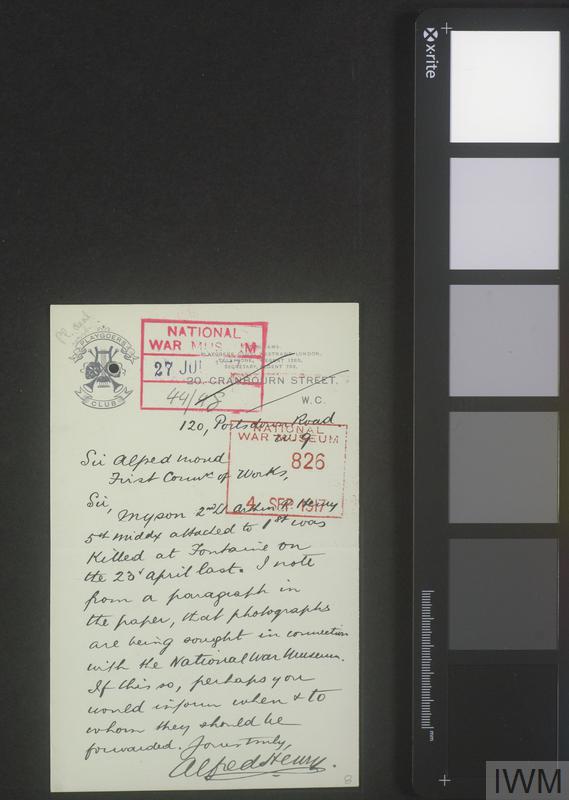 x·rite
Pl. send
PLAYGOERS
CLUB
NATIONAL
WAR MUS M
27 JUL
44/48
TELEGRAMS.
STRAND-LONDON.
TELEPHONE,
SECRETARY,
20. CRANBOURN STREET.
W.C.
120, Portsdown Road
W 9
NATIONAL
WAR MUSEUM
826
4 SEP 1917
Sir Alfred Mond
First Comr of Works,
Sir,
My son 2nd Lt Arthur Henry
5th Middx attached to 1st was
Killed at Fontaine on
the 23d April last. I note
from a paragraph in
the paper, that photographs
are being sought in connection
with the National War Museum.
If this so, perhaps you
would inform when & to
whom they should be
forwarded. Yours truly,
Alfred Henry.
8
mm
IWM